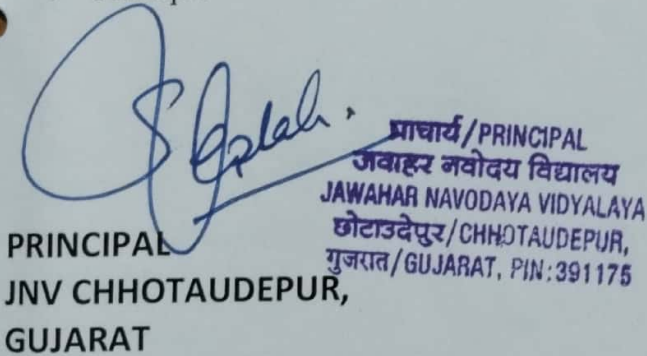 प्राचार्य/PRINCIPAL
जवाहर नवोदय विद्यालय
JAWAHAR NAVODAYA VIDYALAYA
छोटाउदेपुर/CHHOTAUDEPUR,
गुजरात/GUJARAT, PIN:391175
PRINCIPAL
JNV CHHOTAUDEPUR,
GUJARAT